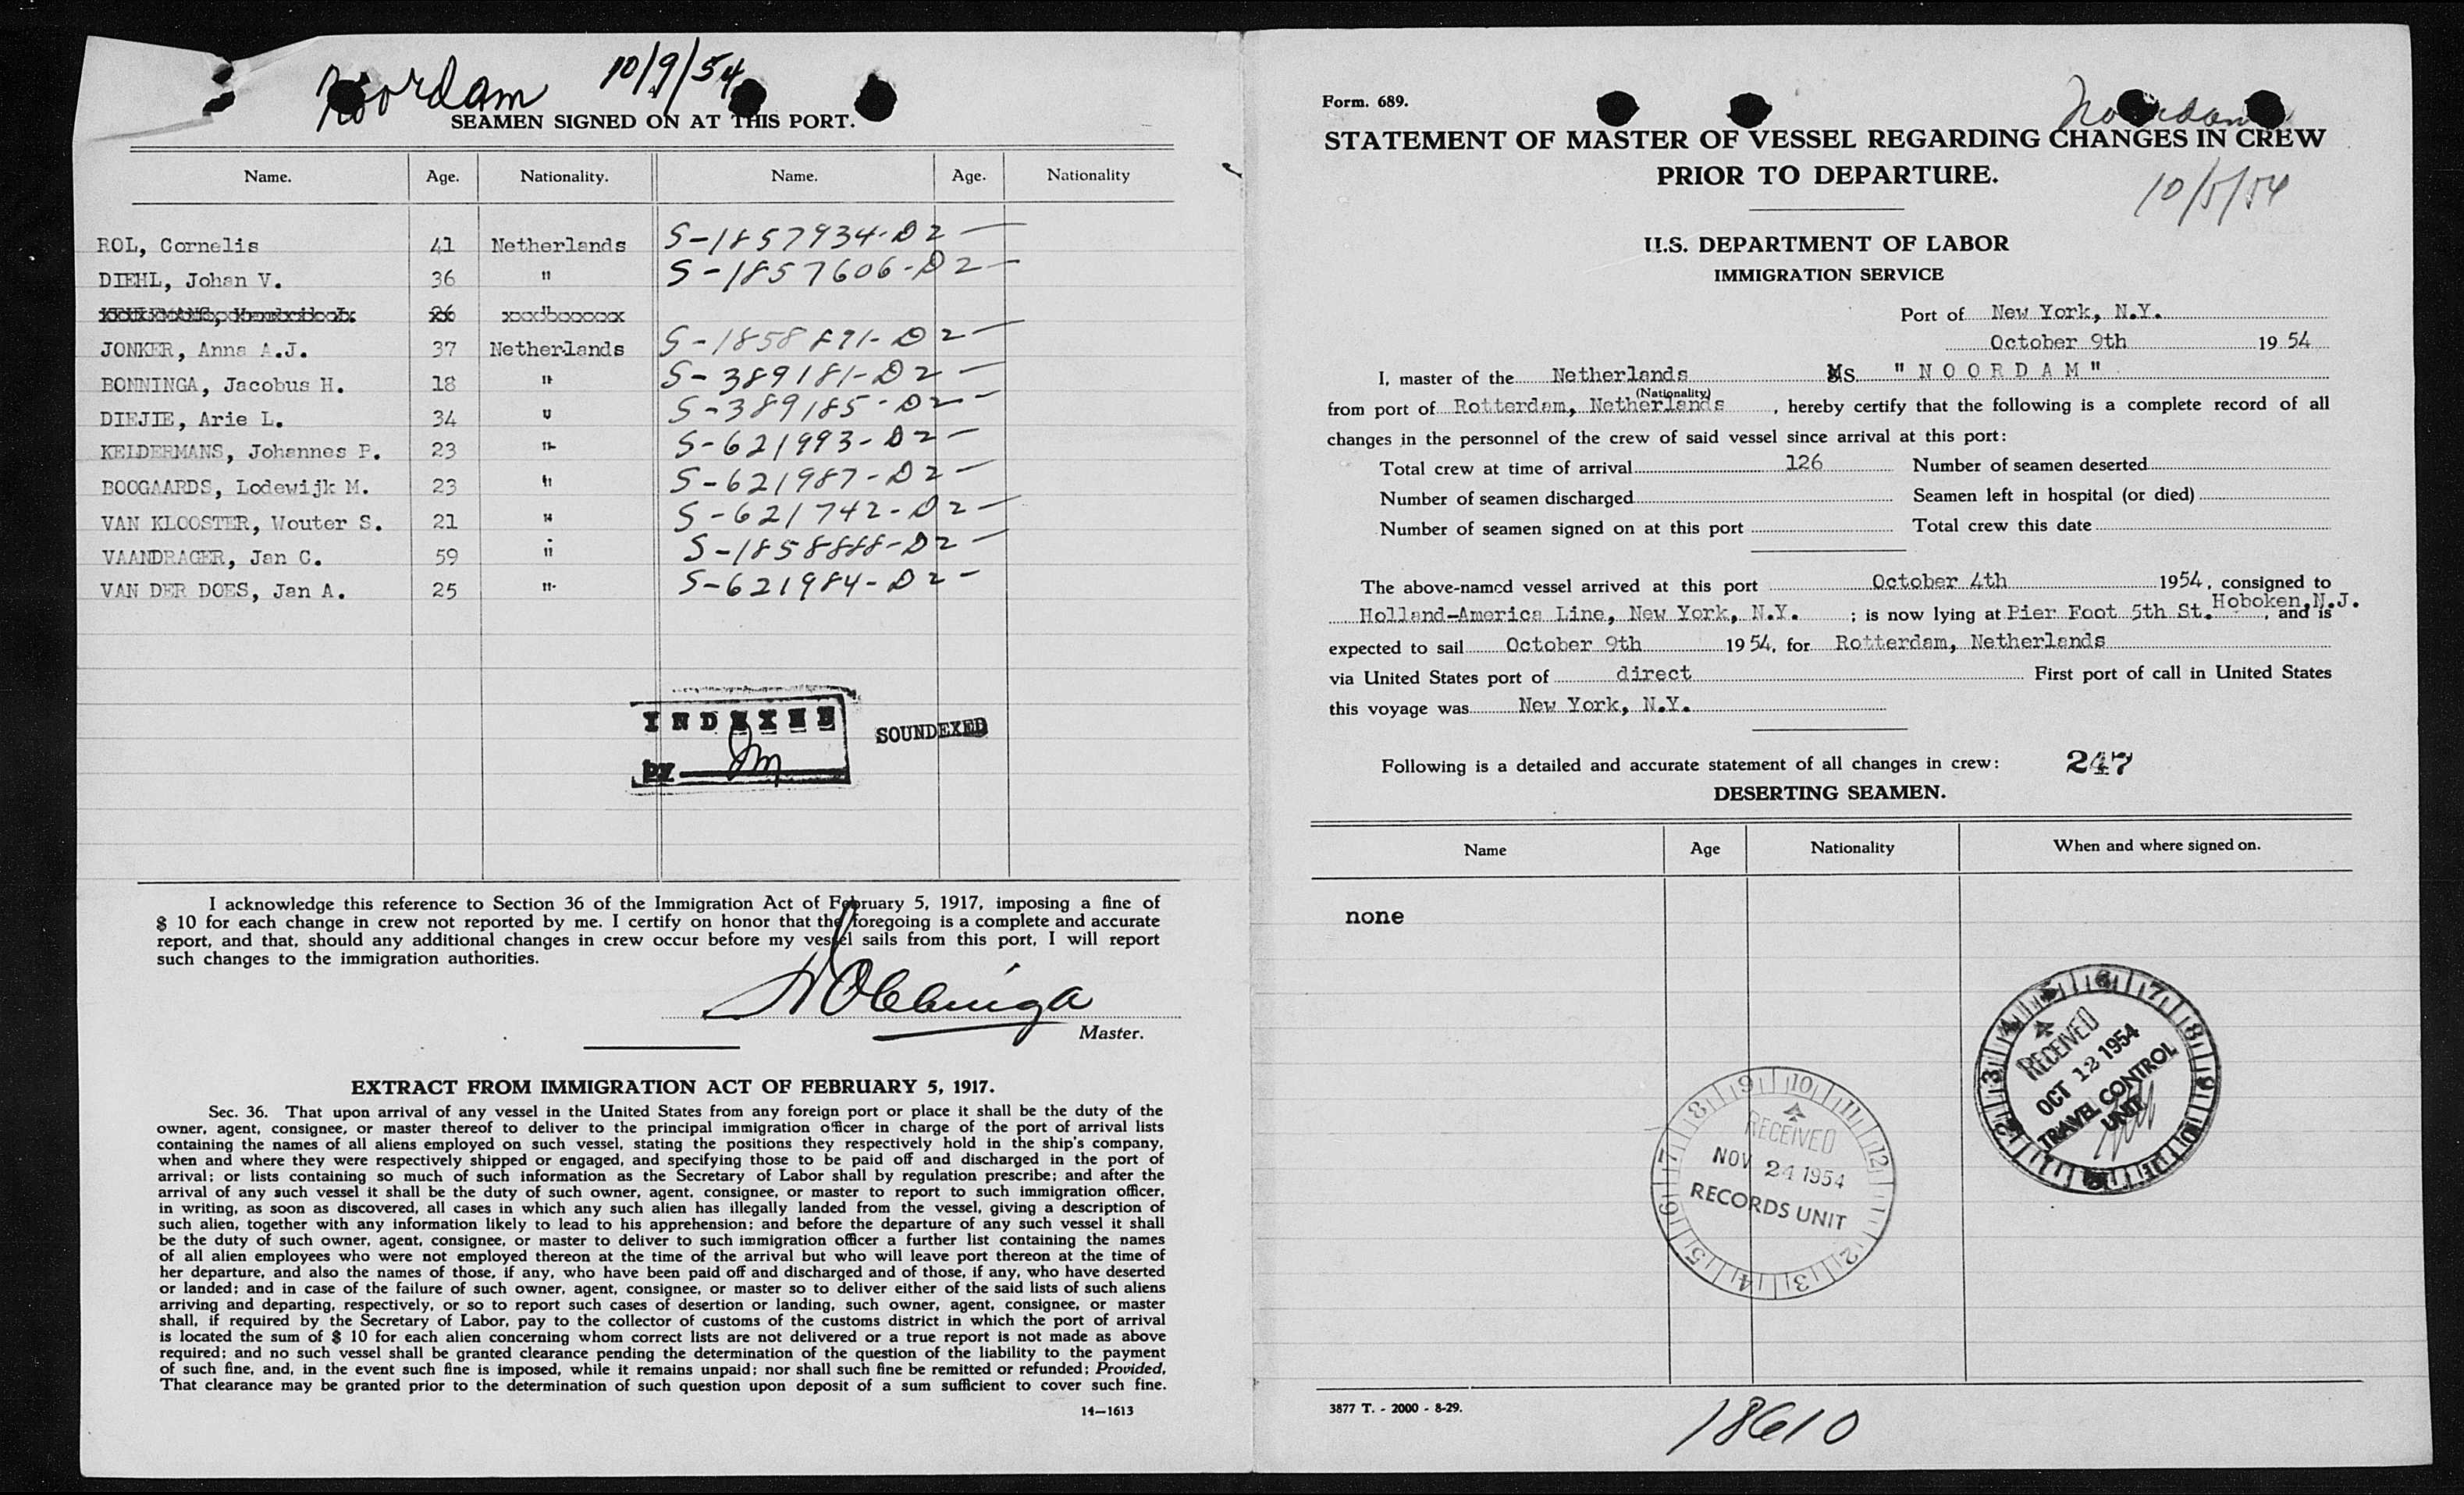 Noordam 10/9/54
SEAMEN SIGNED ON AT THIS PORT.
Name. Age. Nationality. Name. Age. Nationality
ROL, Cornelis 41 Netherlands S-1857934-D2—
DIEHL, Johan V. 36 " S-1857606-D2—
26
JONKER, Anna A.J. 37 Netherlands S-1858891-D2—
BONNINGA, Jacobus H. 18 " S-389181-D2—
DIEJIE, Arie L. 34 " S-389185-D2—
KELDERMANS, Johannes P. 23 " S-621993-D2—
BOOGAARDS, Lodewijk M. 23 " S-621987-D2—
VAN KLOOSTER, Wouter S. 21 " S-621742-D2—
VAANDRAGER, Jan C. 59 " S-1858888-D2—
VAN DER DOES, Jan A. 25 " S-621984-D2—
INDEXED
by
SOUNDEXED
I acknowledge this reference to Section 36 of the Immigration Act of February 5, 1917, imposing a fine of
$ 10 for each change in crew not reported by me. I certify on honor that the foregoing is a complete and accurate
report, and that, should any additional changes in crew occur before my vessel sails from this port, I will report
such changes to the immigration authorities.
Master.
EXTRACT FROM IMMIGRATION ACT OF FEBRUARY 5, 1917.
Sec. 36. That upon arrival of any vessel in the United States from any foreign port or place it shall be the duty of the
owner, agent, consignee, or master thereof to deliver to the principal immigration officer in charge of the port of arrival lists
containing the names of all aliens employed on such vessel, stating the positions they respectively hold in the ship's company,
when and where they were respectively shipped or engaged, and specifying those to be paid off and discharged in the port of
arrival; or lists containing so much of such information as the Secretary of Labor shall by regulation prescribe; and after the
arrival of any such vessel it shall be the duty of such owner, agent, consignee, or master to report to such immigration officer,
in writing, as soon as discovered, all cases in which any such alien has illegally landed from the vessel, giving a description of
such alien, together with any information likely to lead to his apprehension; and before the departure of any such vessel it shall
be the duty of such owner, agent, consignee, or master to deliver to such immigration officer a further list containing the names
of all alien employees who were not employed thereon at the time of the arrival but who will leave port thereon at the time of
her departure, and also the names of those, if any, who have been paid off and discharged and of those, if any, who have deserted
or landed; and in case of the failure of such owner, agent, consignee, or master so to deliver either of the said lists of such aliens
arriving and departing, respectively, or so to report such cases of desertion or landing, such owner, agent, consignee, or master
shall, if required by the Secretary of Labor, pay to the collector of customs of the customs district in which the port of arrival
is located the sum of $ 10 for each alien concerning whom correct lists are not delivered or a true report is not made as above
required; and no such vessel shall be granted clearance pending the determination of the question of the liability to the payment
of such fine, and, in the event such fine is imposed, while it remains unpaid; nor shall such fine be remitted or refunded; Provided,
That clearance may be granted prior to the determination of such question upon deposit of a sum sufficient to cover such fine.
14—1613
Form. 689.
Noordam
STATEMENT OF MASTER OF VESSEL REGARDING CHANGES IN CREW
PRIOR TO DEPARTURE.
10/5/54
U.S. DEPARTMENT OF LABOR
IMMIGRATION SERVICE
Port of New York, N.Y.
October 9th 1954
I, master of the Netherlands Ms. "NOORDAM"
(Nationality)
from port of Rotterdam, Netherlands, hereby certify that the following is a complete record of all
changes in the personnel of the crew of said vessel since arrival at this port:
Total crew at time of arrival 126 Number of seamen deserted
Number of seamen discharged Seamen left in hospital (or died)
Number of seamen signed on at this port Total crew this date
The above-named vessel arrived at this port October 4th 1954, consigned to
Holland-America Line, New York, N.Y. ; is now lying at Pier Foot 5th St. Hoboken, N.J., and is
expected to sail October 9th 1954, for Rotterdam, Netherlands
via United States port of direct First port of call in United States
this voyage was New York, N.Y.
Following is a detailed and accurate statement of all changes in crew: 247
DESERTING SEAMEN.
Name Age Nationality When and where signed on.
none
RECEIVED
OCT 12 1954
TRAVEL CONTROL
UNIT
RECEIVED
NOV 24 1954
RECORDS UNIT
3877 T. - 2000 - 8-29.
18610